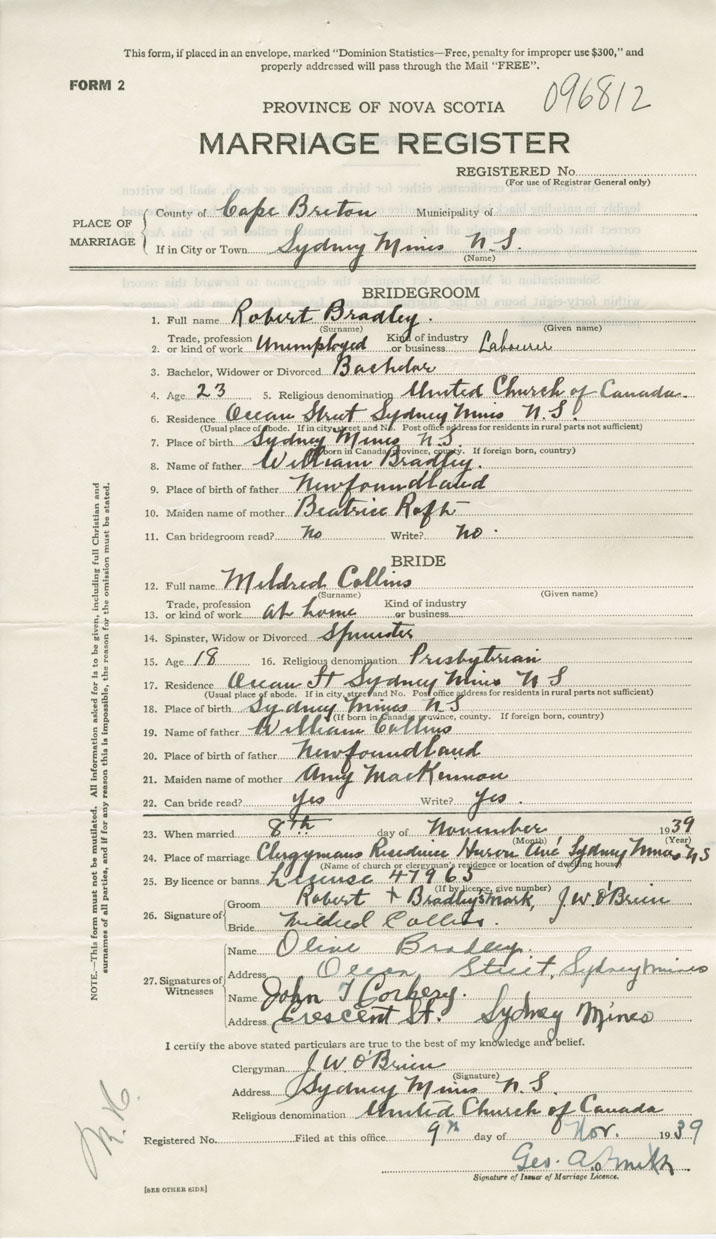 This form, if placed in an envelope, marked "Dominion Statistics—Free, penalty for improper use $300," and
properly addressed will pass through the Mail "FREE".
FORM 2
096812
PROVINCE OF NOVA SCOTIA
MARRIAGE REGISTER
REGISTERED No.
(For use of Registrar General only)
PLACE OF MARRIAGE
County of Cape Breton Municipality of
If in City or Town Sydney Mines N.S.
(Name)
BRIDEGROOM
1. Full name Robert Bradley.
(Surname) (Given name)
2. Trade, profession or kind of work Unemployed Kind of industry or business Labourer
3. Bachelor, Widower or Divorced Bachelor
4. Age 23 5. Religious denomination United Church of Canada.
6. Residence Ocean Street Sydney Mines N.S
(Usual place of abode. If in city, street and No. Post office address for residents in rural parts not sufficient)
7. Place of birth Sydney Mines N.S.
(If born in Canada, province, county. If foreign born, country)
8. Name of father William Bradley.
9. Place of birth of father Newfoundland
10. Maiden name of mother Beatrice
11. Can bridegroom read? No Write? No.
BRIDE
12. Full name Mildred Collins
(Surname) (Given name)
13. Trade, profession or kind of work at home Kind of industry or business
14. Spinster, Widow or Divorced Spinster
15. Age 18 16. Religious denomination Presbyterian
17. Residence Ocean St Sydney Mines N S
(Usual place of abode. If in city, street and No. Post office address for residents in rural parts not sufficient)
18. Place of birth Sydney Mines N S
(If born in Canada, province, county. If foreign born, country)
19. Name of father William Collins
20. Place of birth of father Newfoundland
21. Maiden name of mother Amy MacKennon
22. Can bride read? Yes Write? Yes.
23. When married 8th day of November 1939
(Month) (Year)
24. Place of marriage Clergymans Residence Huron Ave Sydney Mines N S
(Name of church or clergyman's residence or location of dwelling house)
25. By licence or banns License 47965
(If by licence, give number)
26. Signature of
Groom Robert + Bradley's Mark, J.W. O'Brien
Bride Mildred Collins.
27. Signatures of Witnesses
Name Olive Bradley.
Address Ocean Street, Sydney mines
Name John T Corbery.
Address Crescent St. Sydney Mines
I certify the above stated particulars are true to the best of my knowledge and belief.
Clergyman J.W. O'Brien
(Signature)
Address Sydney Mines N.S.
Religious denomination United Church of Canada
Registered No. Filed at this office 9th day of Nov. 1939
Geo. A. Smith
Signature of Issuer of Marriage Licence.
[SEE OTHER SIDE]
NOTE.—This form must not be mutilated. All information asked for is to be given, including full Christian and
surnames of all parties, and if for any reason this is impossible, the reason for the omission must be stated.